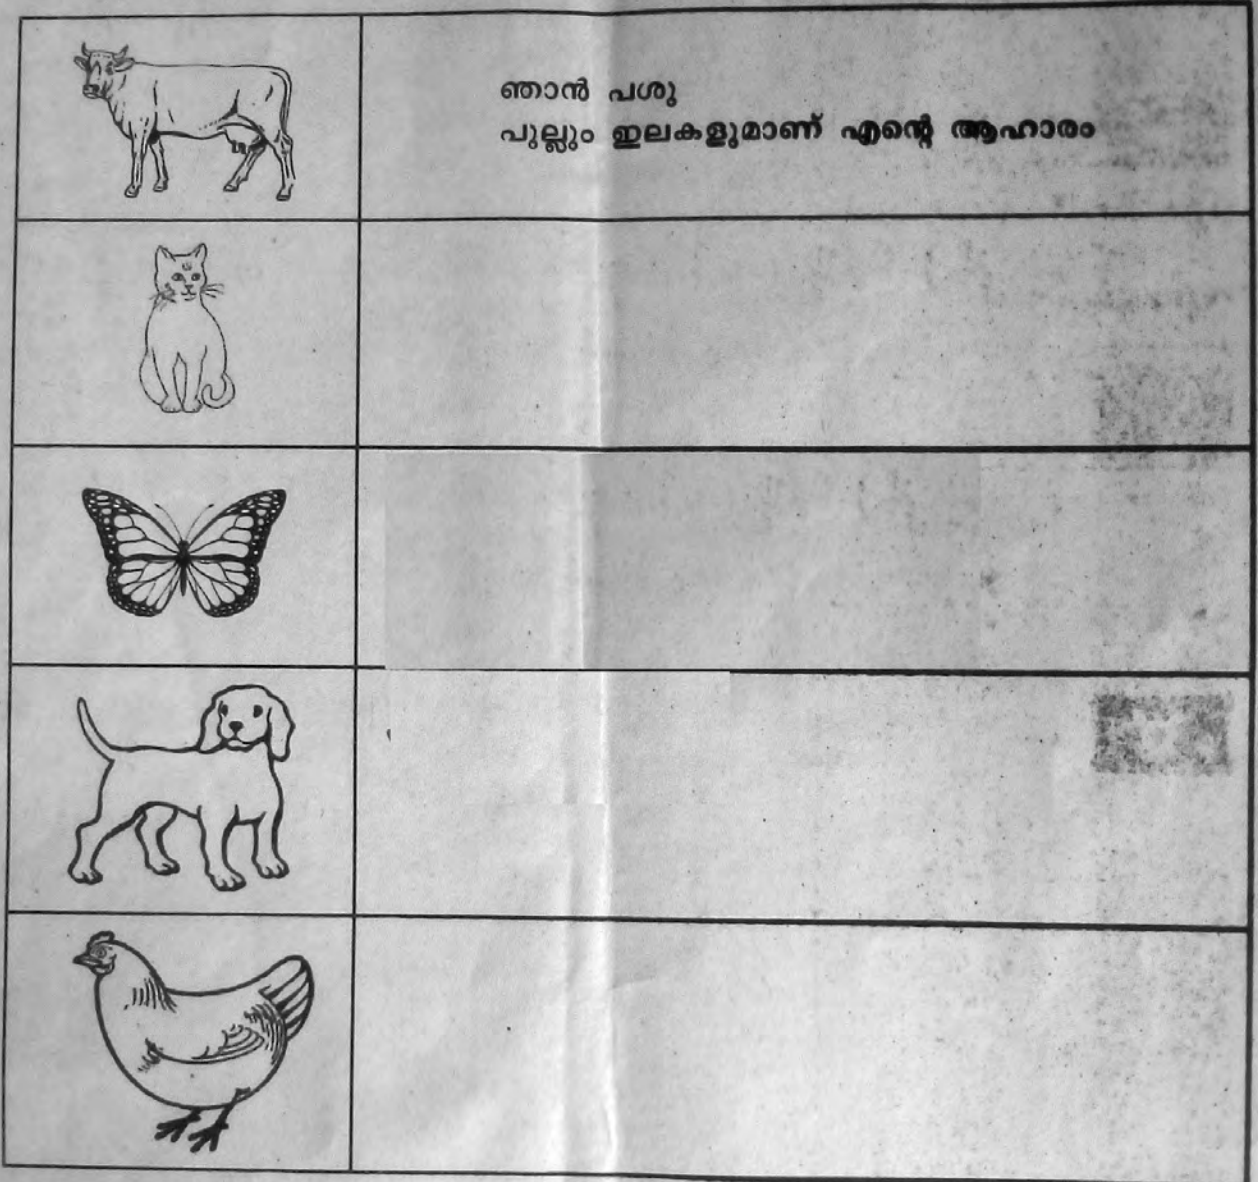 ഞാൻ പശു
പുല്ലും ഇലകളുമാണ് എന്റെ ആഹാരം